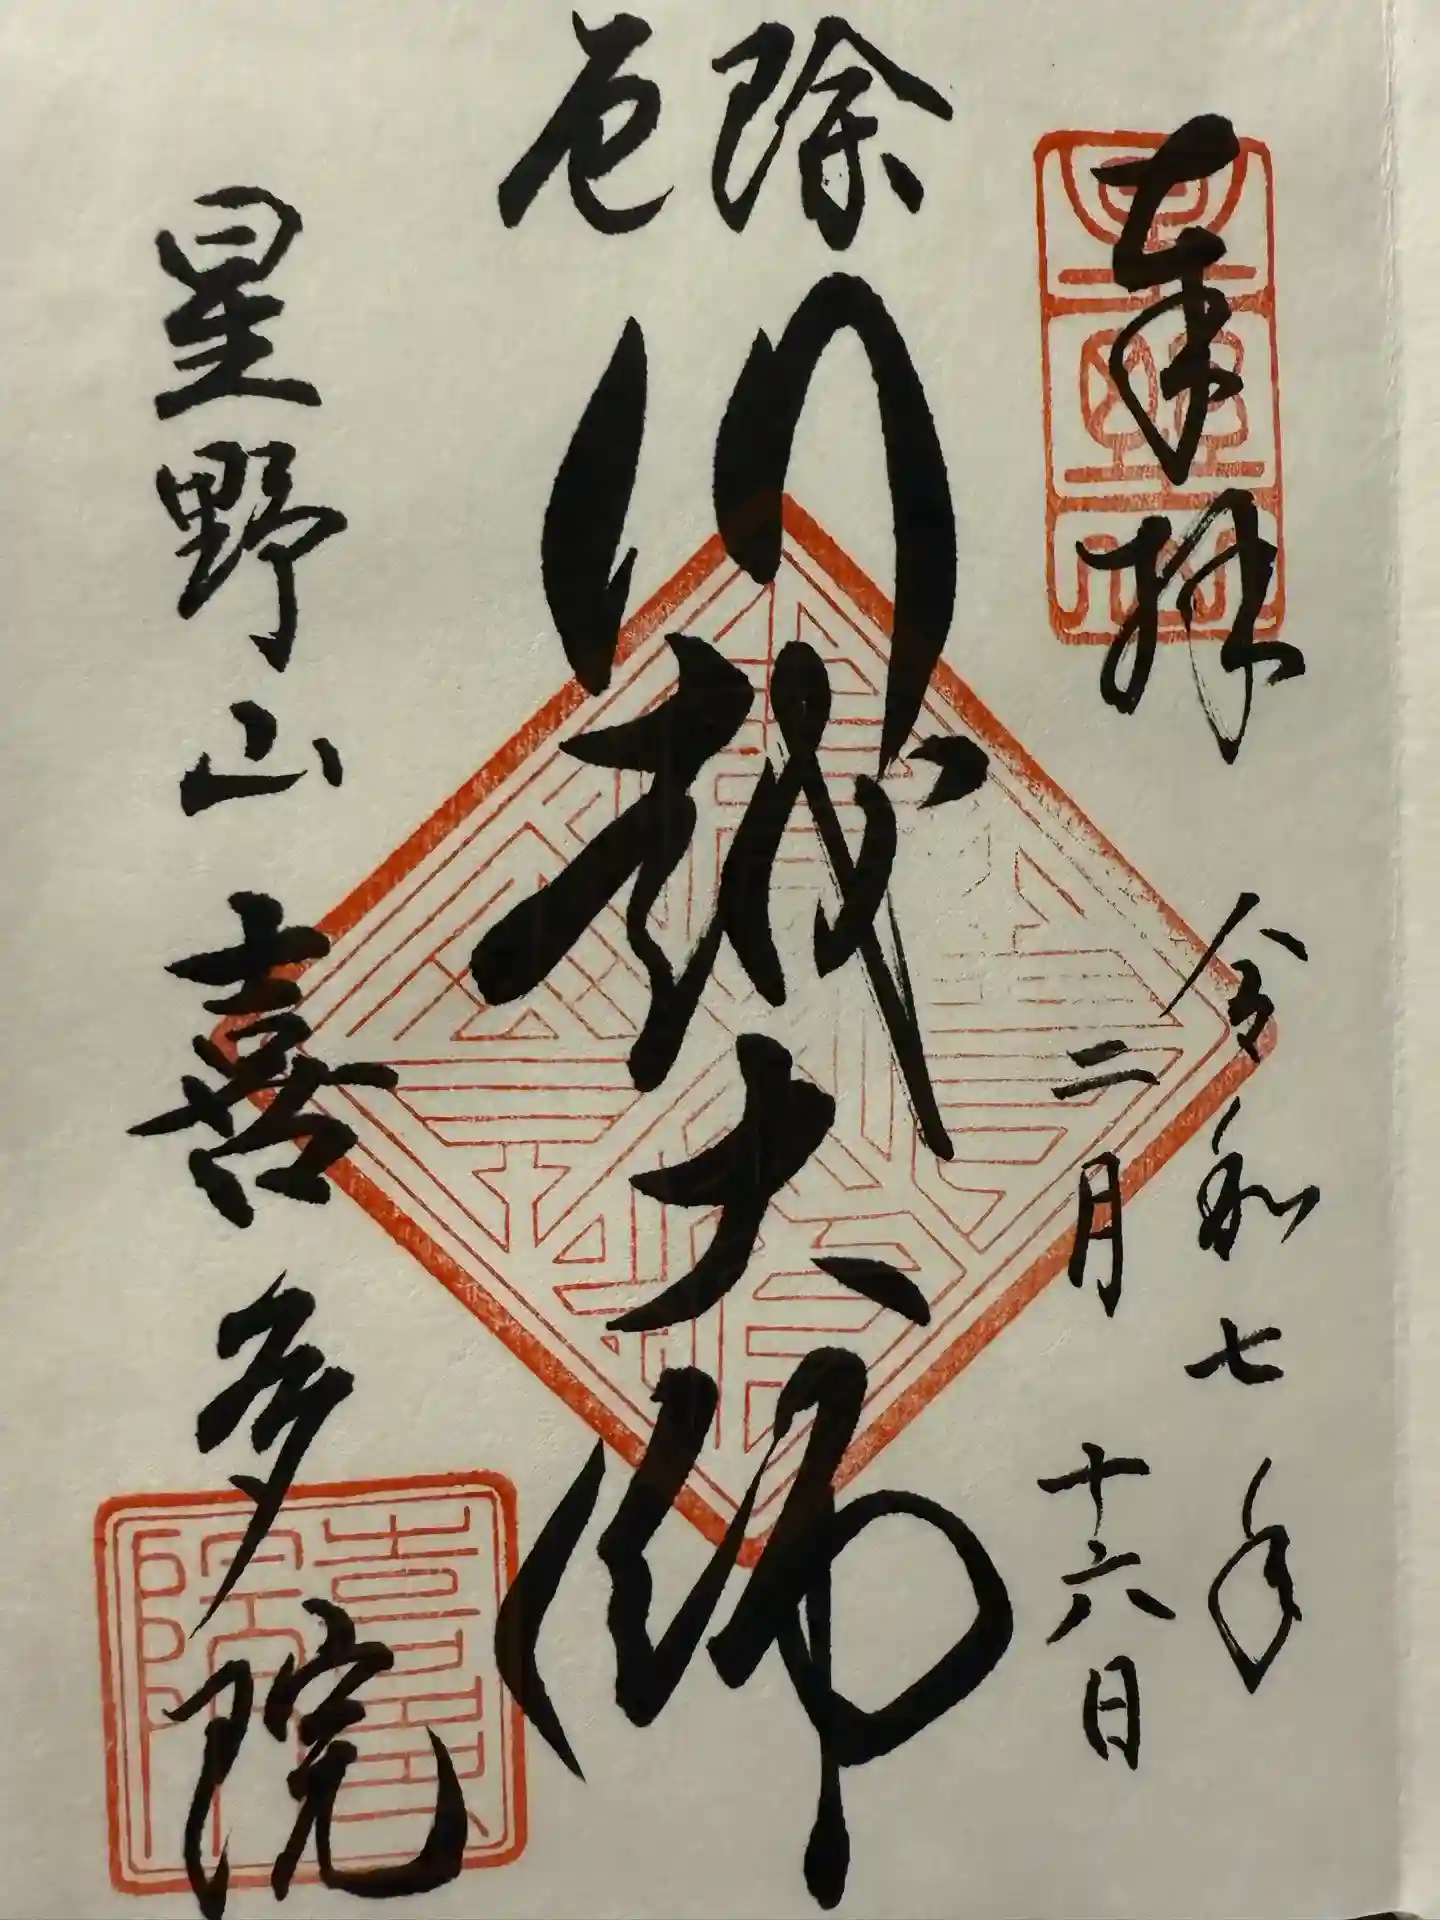 奉拝
令和七年
二月十六日
除厄
川越大師
星野山
喜多院